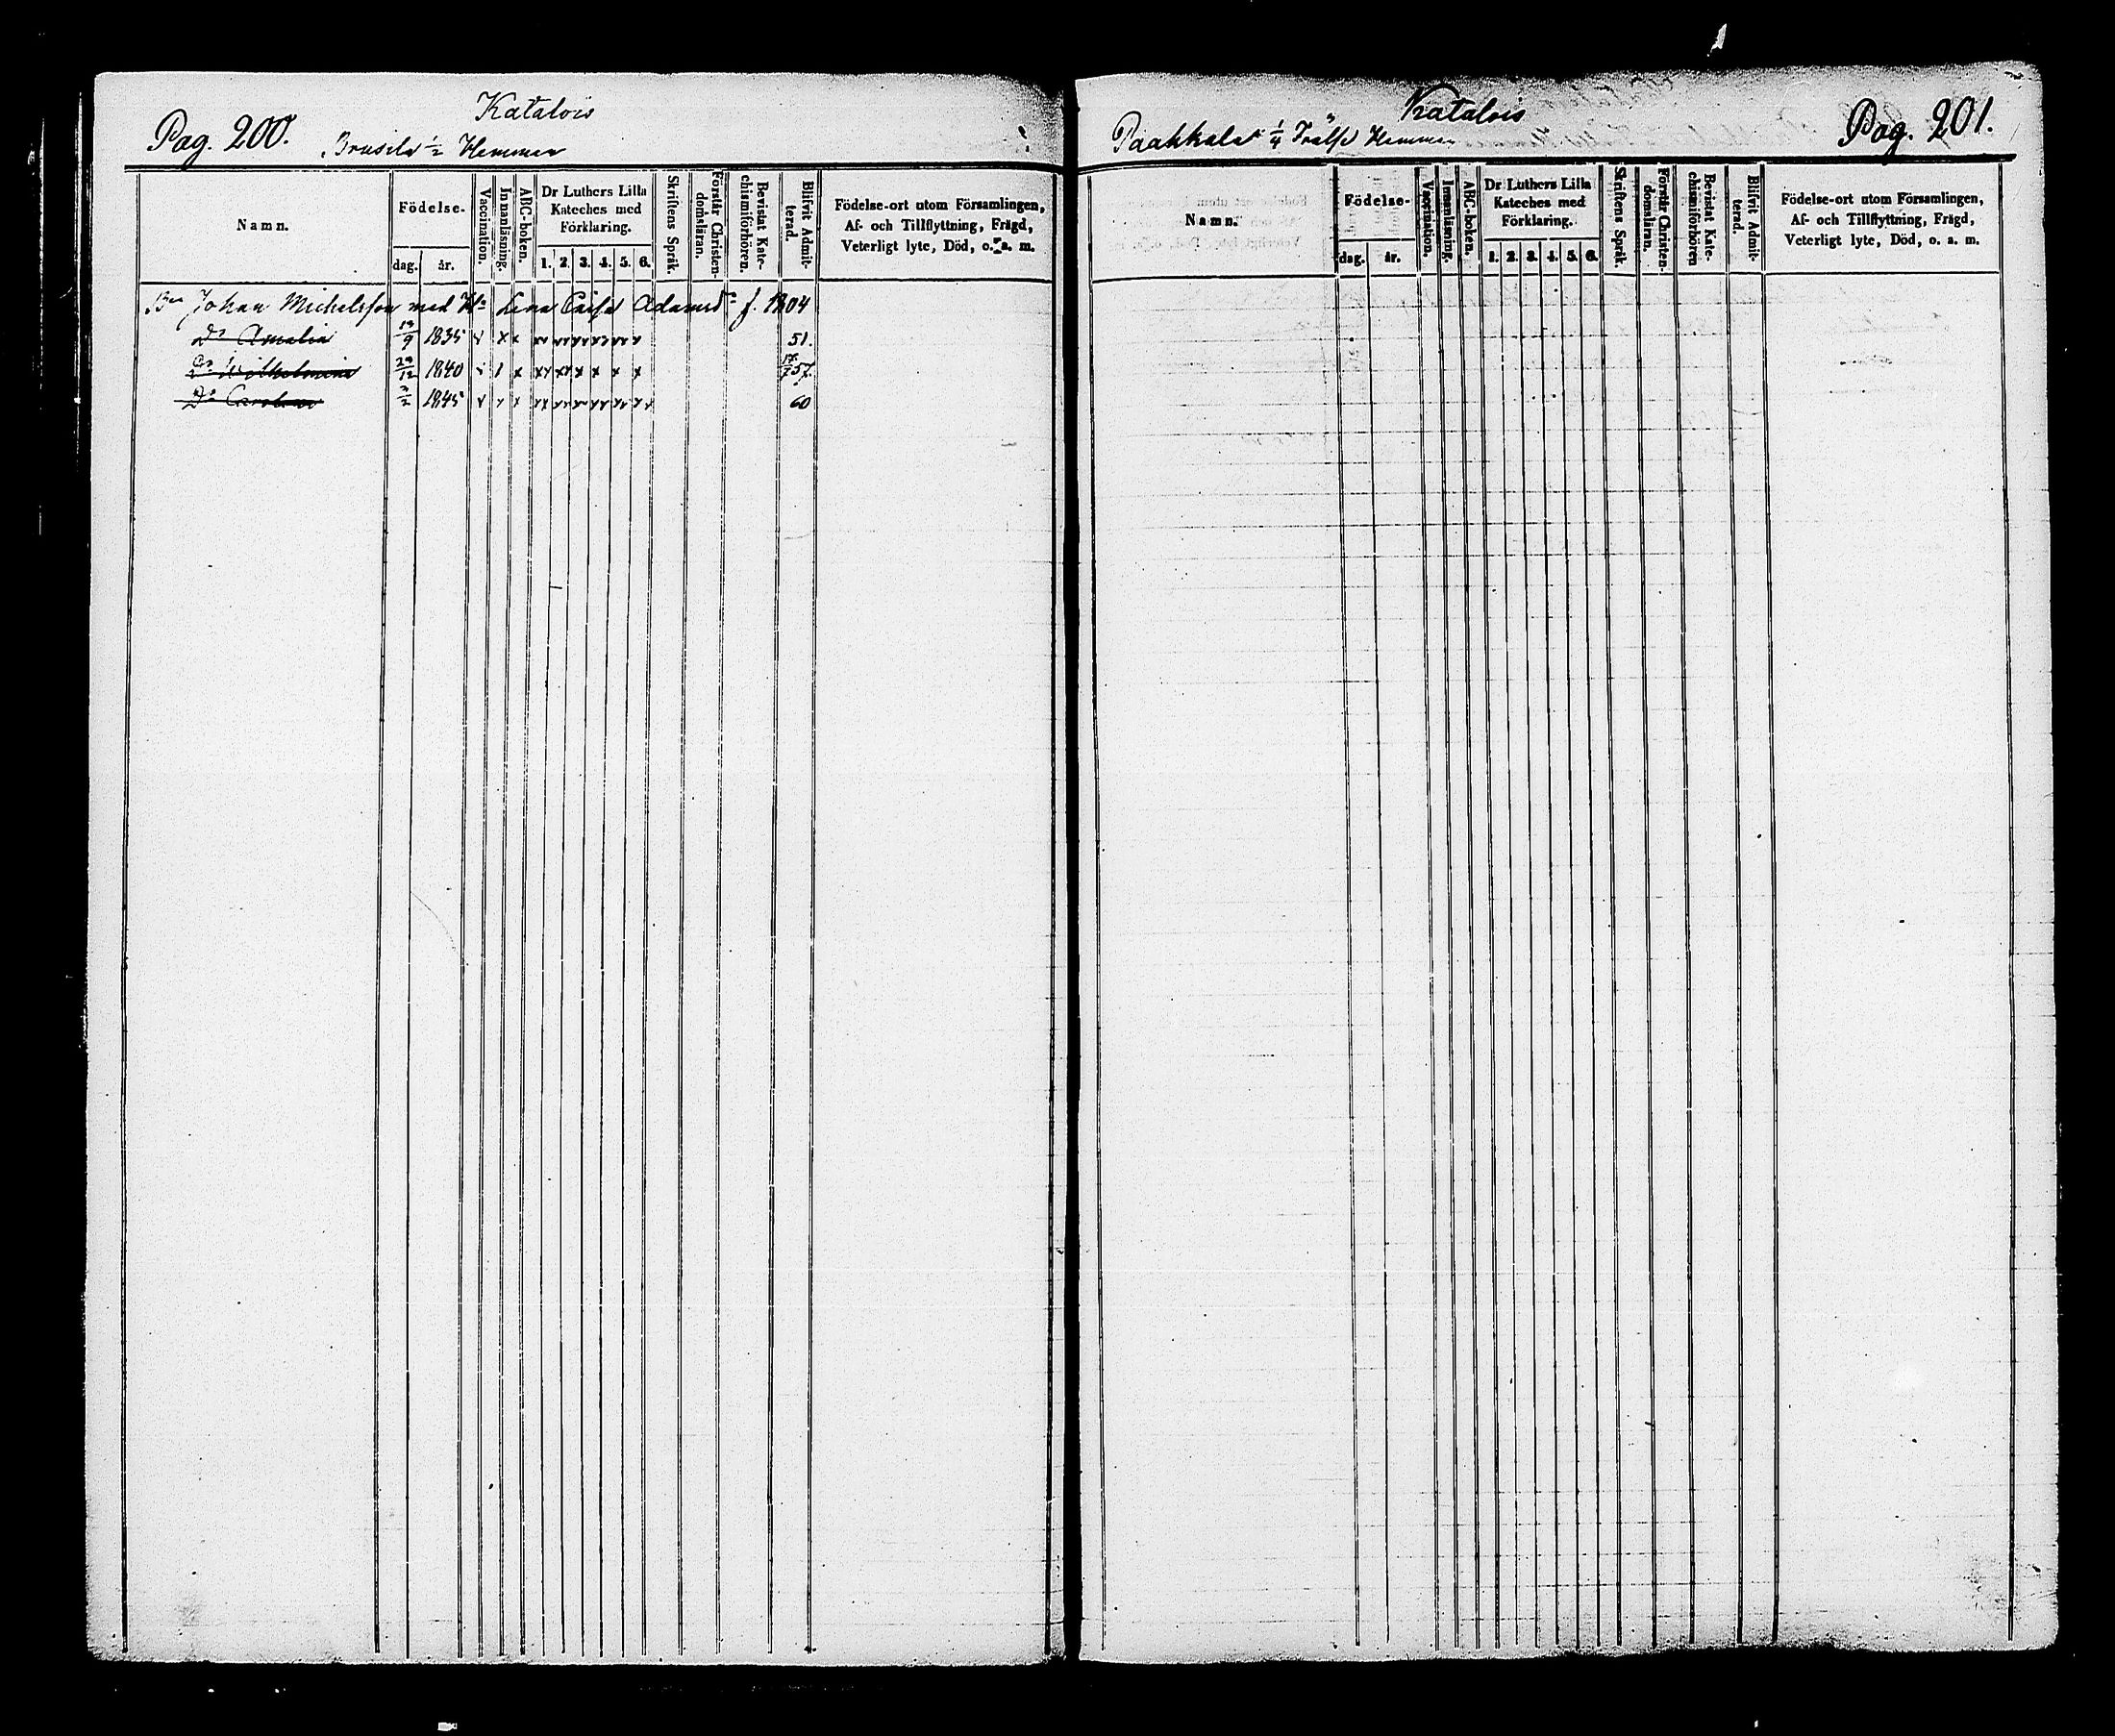 Pag. 200.
Katalois
Brusila 1/2 Hemman
Namn.
Födelse-
dag.
år.
Vaccination.
Innanläsning.
ABC-boken.
Dr Luthers Lilla
Kateches med
Förklaring.
1. 2. 3. 4. 5. 6.
Skriftens Språk.
Förstår Christen-
domsläran.
Bevistat Kate-
chismiförhören.
Blifvit Admit-
terad.
Födelse-ort utom Församlingen,
Af- och Tillflyttning, Frägd,
Veterligt lyte, Död, o. s. a. m.
Johan Michelsson med H: Lena Caisa Adamsd:r f. 1804
D:r Amalia 13/9 1835 v x x xv vv vv xv vv v 51.
D:r Wilhelmina 29/12 1840 x xv xv x x x x 57.
D:r Carolina 3/2 1845 v v x vx vv vv vv vv vv 60
Katalois
Pag. 201.
Paakkala 1/4 Frälse Hemman
Namn.
Födelse-
dag.
år.
Vaccination.
Innanläsning.
ABC-boken.
Dr Luthers Lilla
Kateches med
Förklaring.
1. 2. 3. 4. 5. 6.
Skriftens Språk.
Förstår Christen-
domsläran.
Bevistat Kate-
chismiförhören
Blifvit Admit-
terad.
Födelse-ort utom Församlingen,
Af- och Tillflyttning, Frägd,
Veterligt lyte, Död, o. s. a. m.